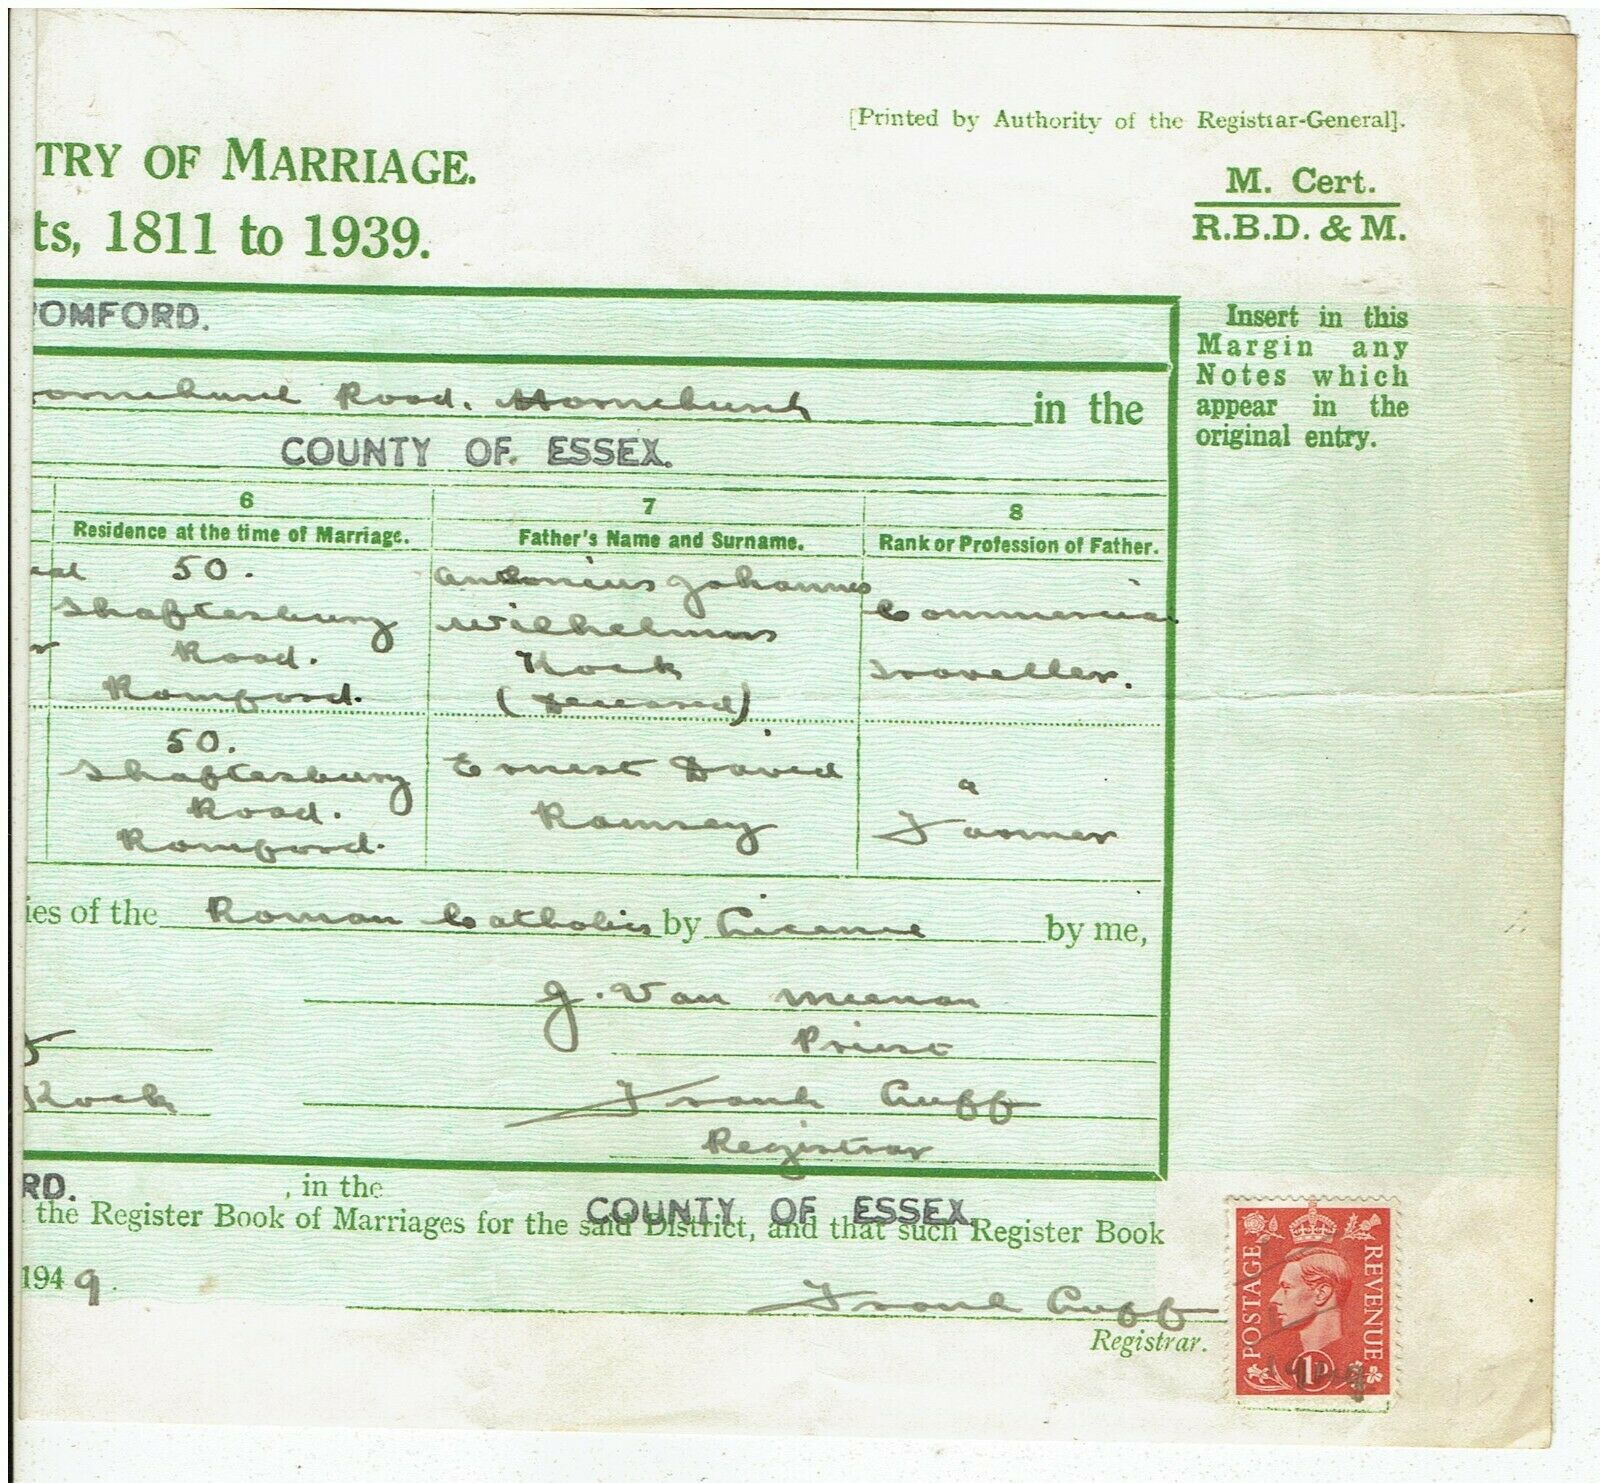 [Printed by Authority of the Registrar-General].
TRY OF MARRIAGE.
M. Cert.
R.B.D. & M.
ts, 1811 to 1939.
OMFORD.
Insert in this
Margin any
Notes which
appear in the
original entry.
Road. Hornchurch in the
COUNTY OF ESSEX.
6 7 8
Residence at the time of Marriage. Father's Name and Surname. Rank or Profession of Father.
50.
Shaftesbury
Road.
Romford.
Antonius Johannes
Wilhelmus
Kock
(deceased)
Commercial
Traveller.
50.
Shaftesbury
Road.
Romford.
Ernest David
Ramsey
a
Farmer
ies of the Roman Catholics by Licence by me,
J. Van Meenan
Priest
Kock
Frank Cuff
Registrar
RD. , in the COUNTY OF ESSEX.
the Register Book of Marriages for the said District, and that such Register Book
1949.
Frank Cuff
Registrar.
POSTAGE
REVENUE
1D